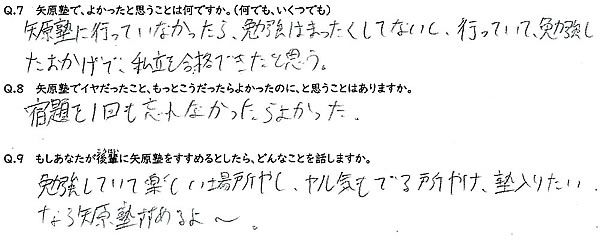 Q.7 矢原塾で、よかったと思うことは何ですか。（何でも、いくつでも）
矢原塾に行っていなかったら、勉強はまったくしてないし、行っていて、勉強し
たおかげで、私立も合格できたと思う。
Q.8 矢原塾でイヤだったこと、もっとこうだったらよかったのに、と思うことはありますか。
宿題を1回も忘れなかったらよかった。
Q.9 もしあなたが後輩に矢原塾をすすめるとしたら、どんなことを話しますか。
勉強していて楽しい場所やし、ヤル気もでる所やけ、塾入りたい
なら矢原塾があるよ〜。